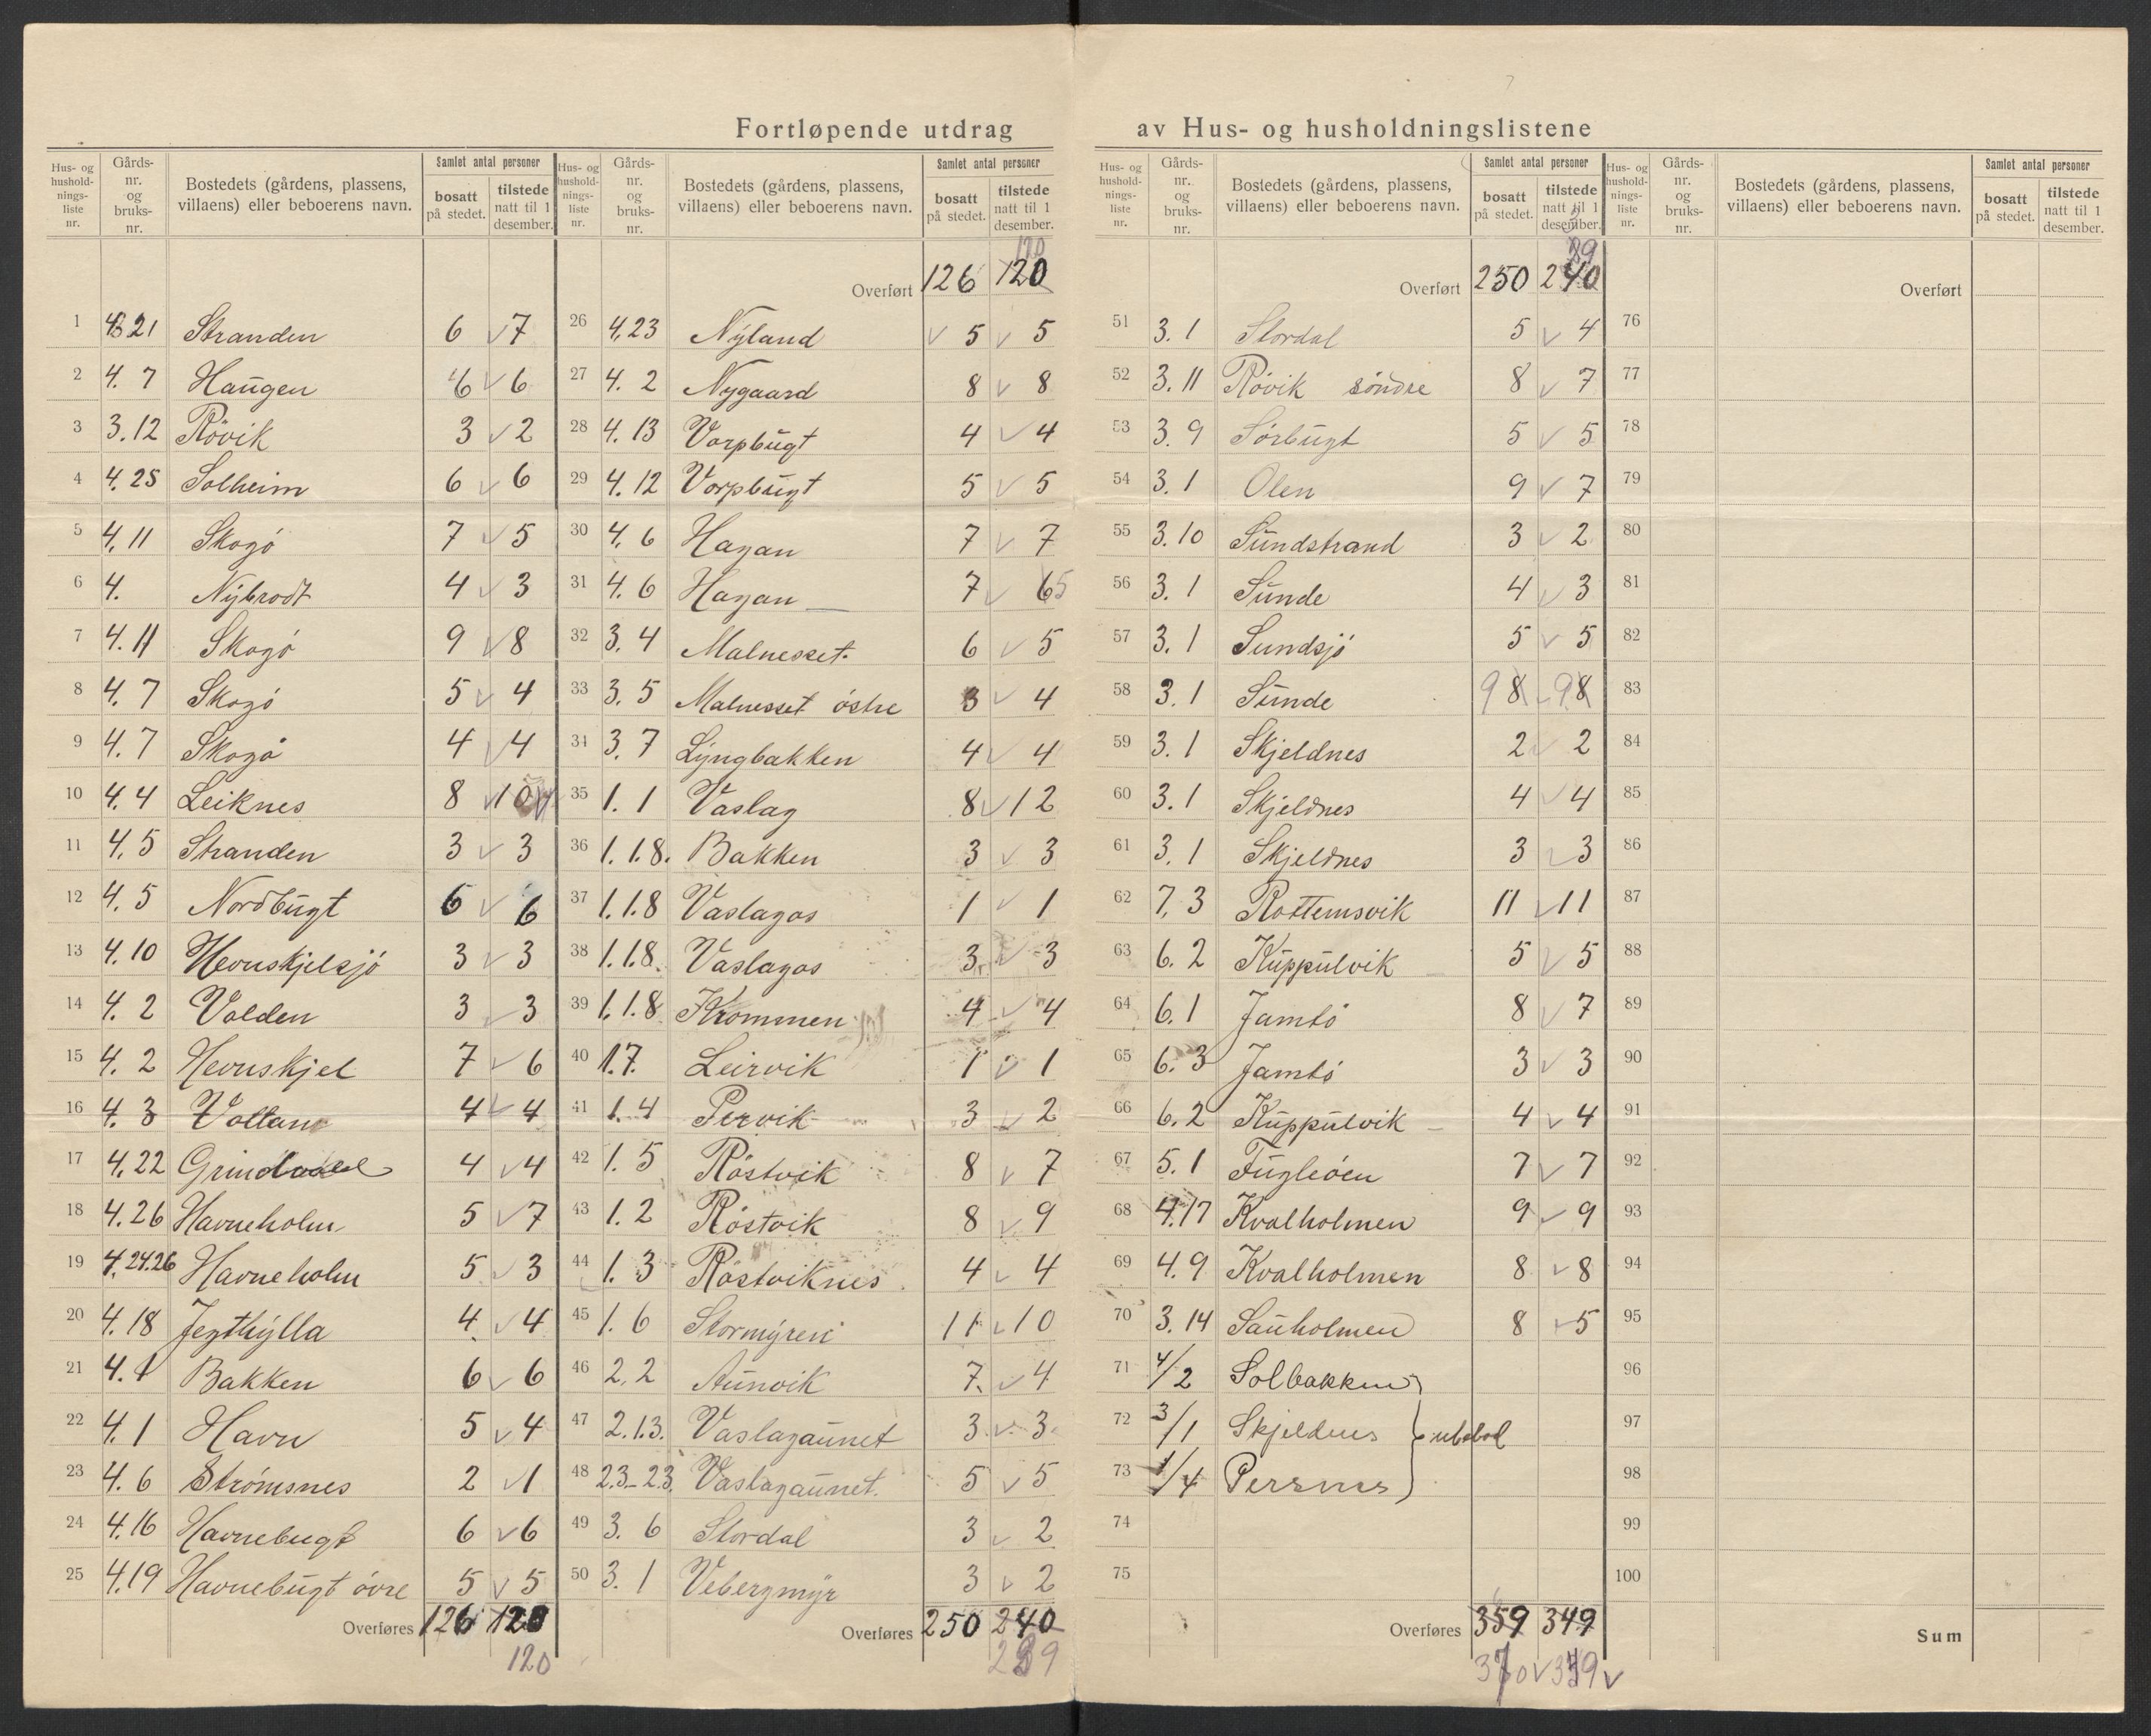 Fortløpende utdrag av Hus- og husholdningslistene
Hus- og husholdnings-liste nr. | Gårds-nr. og bruks-nr. | Bostedets (gårdens, plassens, villaens) eller beboerens navn. | Samlet antal personer | bosatt på stedet. | tilstede natt til 1 desember.
1 | 21 | Stranden | 6 | 7
2 | 4. 7 | Haugen | 6 | 6
3 | 3.12 | Røvik | 3 | 2
4 | 4.25 | Solheim | 6 | 6
5 | 4.11 | Skogø | 7 | 5
6 | 4. | Nybrodt | 4 | 3
7 | 4.11 | Skogø | 9 | 8
8 | 4. 7 | Skogø | 5 | 4
9 | 4. 7 | Skogø | 4 | 4
10 | 4. 4 | Leiknes | 8 | 10
11 | 4. 5 | Stranden | 3 | 3
12 | 4. 5 | Nordbugt | 6 | 6
13 | 4. 10 | Hevnskjelsjø | 3 | 3
14 | 4. 2 | Volden | 3 | 3
15 | 4. 2 | Hevnskjel | 7 | 6
16 | 4. 3 | 4 | 4
17 | 4.22 | 4 | 4
18 | 4.26 | Havneholm | 5 | 7
19 | 4.24.26 | Havneholm | 5 | 3
20 | 4.18 | Jegthylla | 4 | 4
21 | 4. 1 | Bakken | 6 | 6
22 | 4. 1 | Havn | 5 | 4
23 | 4. 6 | Strømsnes | 2 | 1
24 | 4.16 | Havnebugt | 6 | 6
25 | 4.19 | Havnebugt øvre | 5 | 5
Overføres 126 120
120
Hus- og husholdnings-liste nr. | Gårds-nr. og bruks-nr. | Bostedets (gårdens, plassens, villaens) eller beboerens navn. | Samlet antal personer | bosatt på stedet. | tilstede natt til 1 desember.
120
Overført 126 120
26 | 4.23 | Nyland | 5 | 5
27 | 4. 2 | Nygaard | 8 | 8
28 | 4. 13 | Vorpbugt | 4 | 4
29 | 4. 12 | Vorpbugt | 5 | 5
30 | 4. 6 | Hagan | 7 | 7
31 | 4. 6 | Hagan | 7 | 6 5
32 | 3. 4 | Malnesset | 6 | 5
33 | 3. 5 | Malnesset østre | 3 | 4
34 | 3. 7 | Lyngbakken | 4 | 4
35 | 1. 1 | Vaslag | 8 | 12
36 | 1.1.8. | Bakken | 3 | 3
37 | 1.1.8 | Vaslagos | 1 | 1
38 | 1.1.8. | Vaslagos | 3 | 3
39 | 1.1.8 | Krommen | 4 | 4
40 | 1.7. | Leirvik | 1 | 1
41 | 1. 4 | Pervik | 3 | 2
42 | 1. 5 | Røstvik | 8 | 7
43 | 1. 2 | Røstvik | 8 | 9
44 | 1. 3 | Røstviknes | 4 | 4
45 | 1. 6 | Stormyren | 11 | 10
46 | 2. 2 | Aunvik | 7 | 4
47 | 2.1.3. | Vaslagaunet | 3 | 3
48 | 2.3-2.3. | Vaslagaunet. | 5 | 5
49 | 3. 6 | Stordal | 3 | 2
50 | 3. 1 | Vebergmyr | 3 | 2
Overføres 250 240
239
Hus- og husholdnings-liste nr. | Gårds-nr. og bruks-nr. | Bostedets (gårdens, plassens, villaens) eller beboerens navn. | Samlet antal personer | bosatt på stedet. | tilstede natt til 1 desember.
39
Overført 250 240
51 | 3. 1 | Stordal | 5 | 4
52 | 3. 11 | Røvik søndre | 8 | 7
53 | 3. 9 | Sørbugt | 5 | 5
54 | 3. 1 | Olen | 9 | 7
55 | 3.10 | Sundstrand | 3 | 2
56 | 3. 1 | Sunde | 4 | 3
57 | 3. 1 | Sundsjø | 5 | 5
58 | 3. 1 | Sunde | 9 8 | 9 8
59 | 3. 1 | Skjeldnes | 2 | 2
60 | 3. 1 | Skjeldnes | 4 | 4
61 | 3. 1 | Skjeldnes | 3 | 3
62 | 7. 3 | Rottemsvik | 11 | 11
63 | 6. 2 | Kuppulvik | 5 | 5
64 | 6. 1 | Jamtø | 8 | 7
65 | 6. 3 | Jamtø | 3 | 3
66 | 6. 2 | Kuppulvik | 4 | 4
67 | 5. 1 | Fugleøen | 7 | 7
68 | 4.17 | Kvalholmen | 9 | 9
69 | 4. 9 | Kvalholmen | 8 | 8
70 | 3. 14 | Sauholmen | 8 | 5
71 | 4/2 | Solbakken
72 | 3/1 | Skjeldnes | ubebod
73 | 1/4 | Persnes
74
75
Overføres 359 349
370 359
Hus- og husholdnings-liste nr. | Gårds-nr. og bruks-nr. | Bostedets (gårdens, plassens, villaens) eller beboerens navn. | Samlet antal personer | bosatt på stedet. | tilstede natt til 1 desember.
Overført
76
77
78
79
80
81
82
83
84
85
86
87
88
89
90
91
92
93
94
95
96
97
98
99
100
Sum